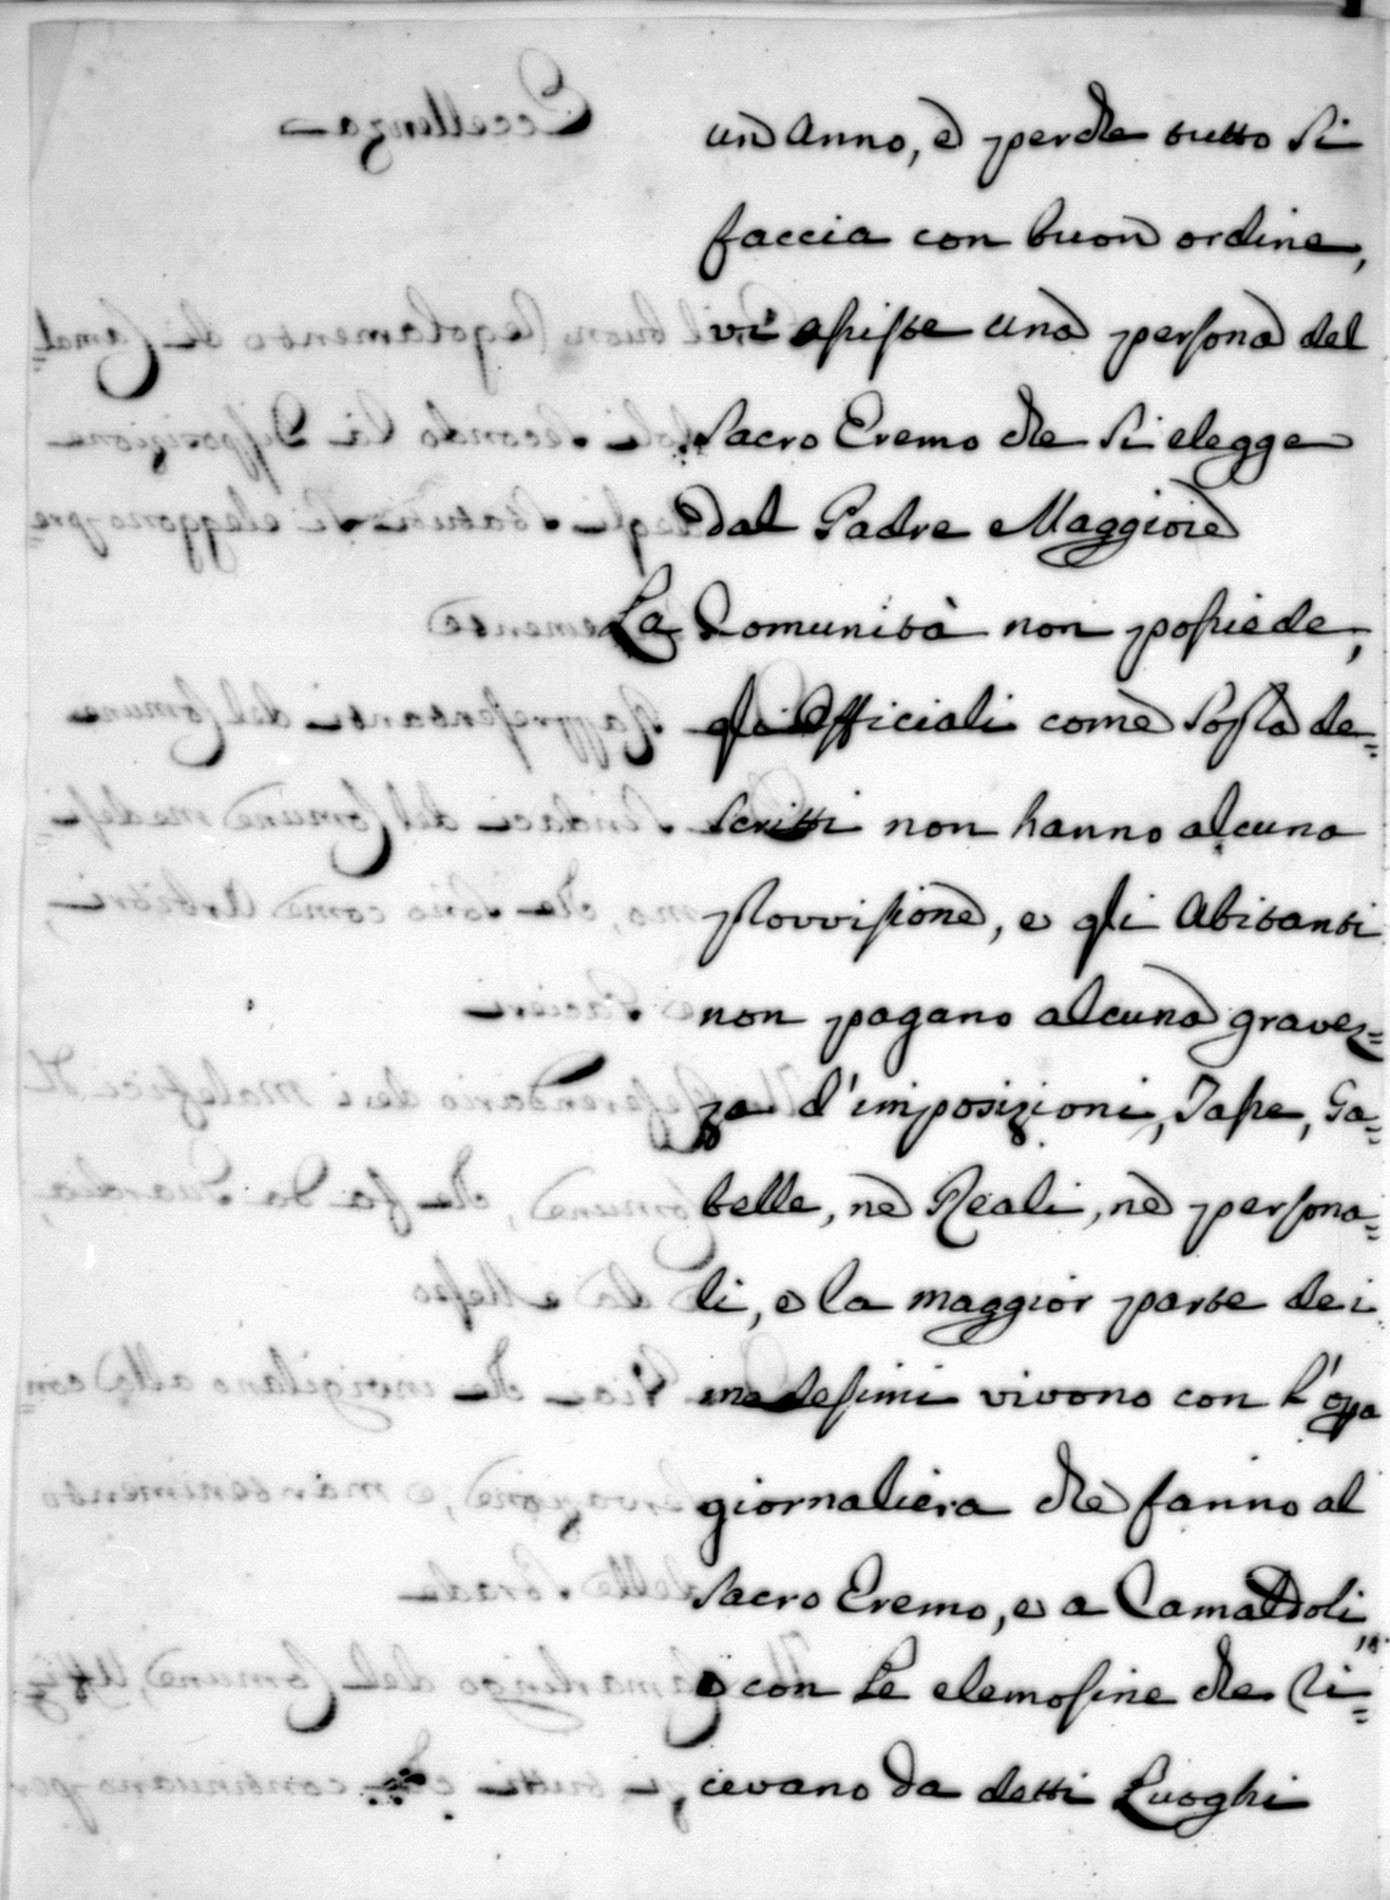 un Anno, e perche tutto si
faccia con buon ordine,
vi assiste una persona del
Sacro Eremo che si elegge
dal Padre Maggiore
La Comunità non possiede,
gli Officiali come sopra de=
scritti non hanno alcuna
provvisione, e gli Abitanti
non pagano alcuna gravez=
za d'imposizioni, Tasse, Ga=
belle, nè Reali, nè persona=
li, e la maggior parte dei
medesimi vivono con l'opa
giornaliera che fanno al
Sacro Eremo, e a Camaldoli,
o con le elemosine che ri=
cevano da detti Luoghi